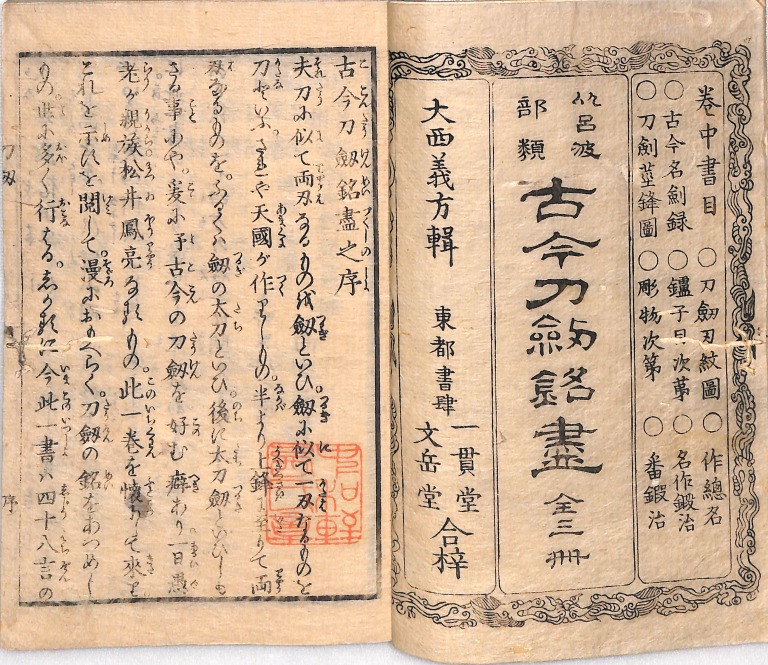 巻中書目 ○刀劔刃紋圖 ○作總名
○古今名劍録 ○次第 ○名作鍛冶
○刀劍莖鋒圖 ○彫物次第 ○番鍛冶
以呂波部類
古今刀劔銘盡 全三冊
大西義方輯 東都書肆 一貫堂 文岳堂 合梓
古今刀劔銘盡之序
夫刀に似て両刃なるもの代劔といひ。劔に似て一刃なるものを
刀といふ。されや天國が作りしもの。半より上鋒に至りて両
刃なるものを。ふるくハ劔の太刀といひ。後に太刀劔といひしも
さる事にや。爰に予古今の刀劔を好む癖あり一日愚
老が親族松井鳳亮なるもの。此一巻を懐にして來り
これを示すを閲して漫におもへらく刀劔の銘をあつめし
もの世に多く行はる。しかるに今此一書ハ四十八言の
序